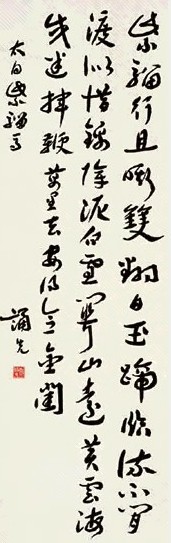 紫騮行且嘶雙翻白玉蹄臨流不肯
渡似惜錦障泥白雪關山遠黃雲海
戍迷揮鞭萬里去安得念閨
太白紫騮馬
誦先